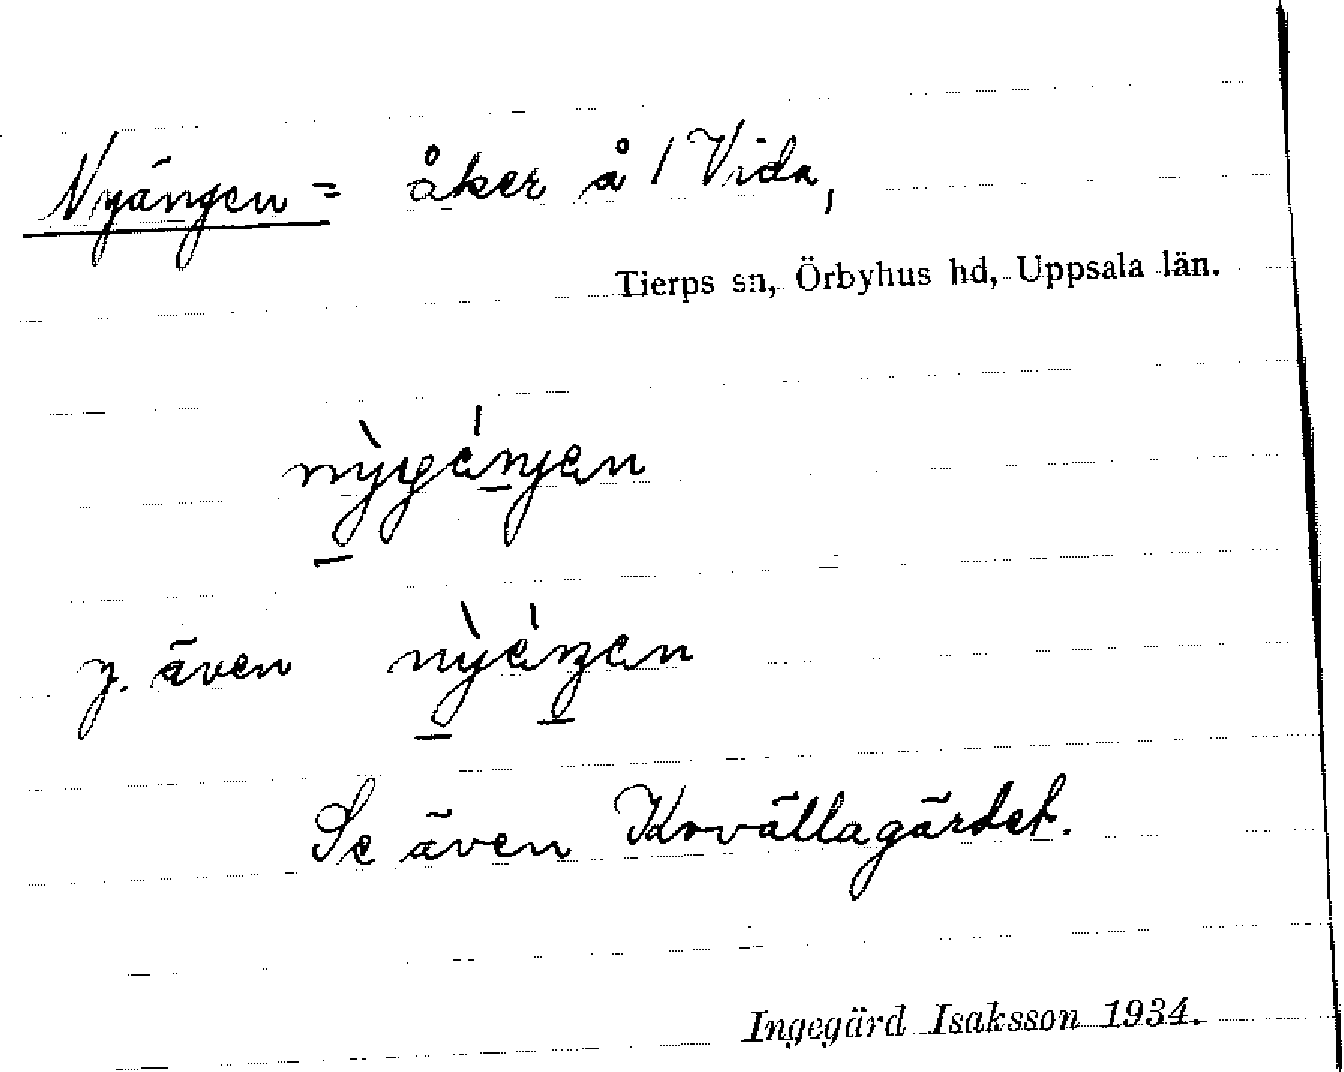 Nyängen = åker å 1 Vida,
Tierps sn, Örbyhus hd, Uppsala län.
y. även
Se även Kovällagärdet.
Ingegärd Isaksson 1934.